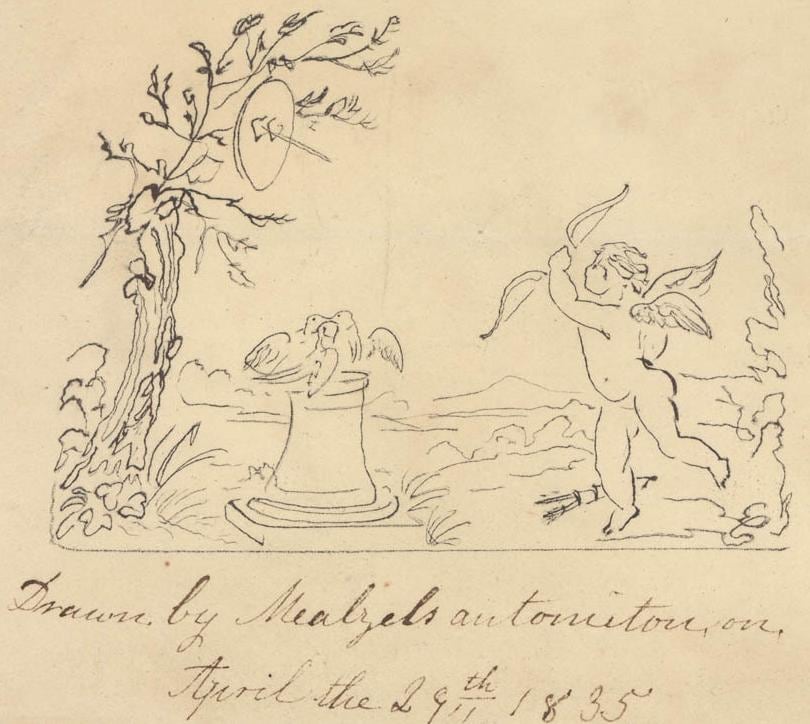 Drawn by Mealzels automiton, on.
April the 29th 1835